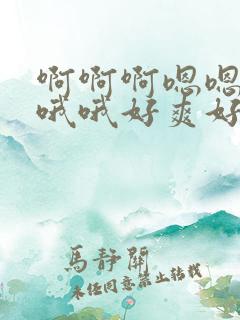 啊啊啊嗯嗯
哦哦好爽好
馬靜閑
未经同意禁止转载